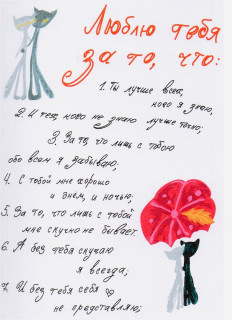 Люблю тебя
за то, что:
1. Ты лучше всех,
кого я знаю,
2. И тех, кого не знаю лучше тоже;
3. За то, что лишь с тобою
обо всем я забываю;
4. С тобой мне хорошо
и днем, и ночью;
5. За то, что лишь с тобой
мне скучно не бывает.
6. А без тебя скучаю
я всегда;
7. И без тебя себя
не представляю;